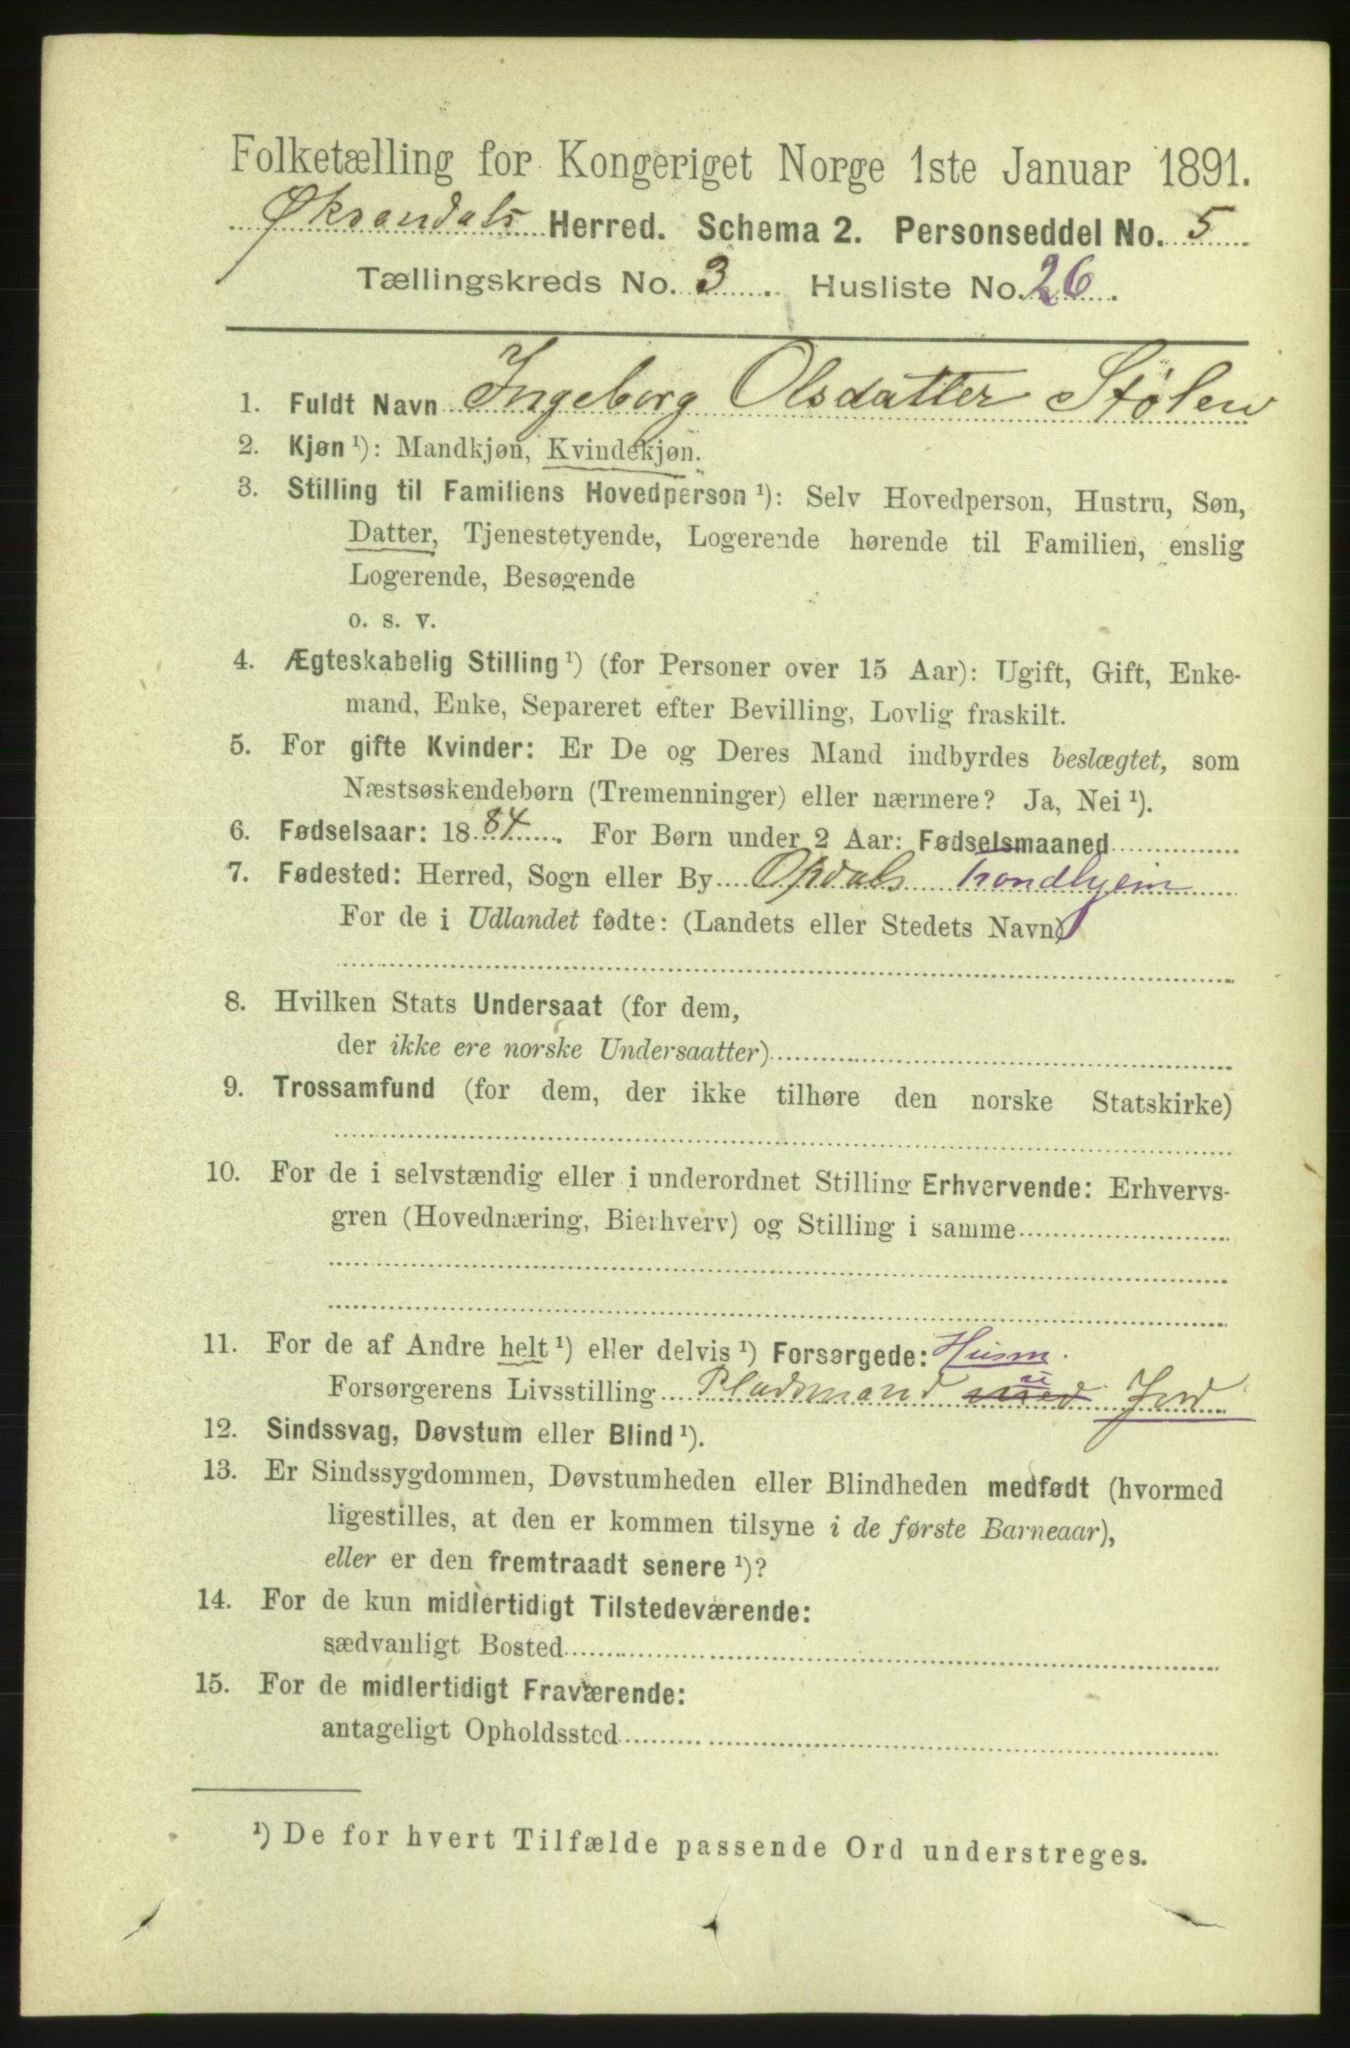 Folketælling for Kongeriget Norge 1ste Januar 1891.
Øksendals Herred. Schema 2. Personseddel No. 5
Tællingskreds No. 3. Husliste No. 26.
1. Fuldt Navn Ingeborg Olsdatter Stølen
2. Kjøn ¹): Mandkjøn, Kvindekjøn.
3. Stilling til Familiens Hovedperson ¹): Selv Hovedperson, Hustru, Søn,
Datter, Tjenestetyende, Logerende hørende til Familien, enslig
Logerende, Besøgende
o. s. v.
4. Ægteskabelig Stilling ¹) (for Personer over 15 Aar): Ugift, Gift, Enke-
mand, Enke, Separeret efter Bevilling, Lovlig fraskilt.
5. For gifte Kvinder: Er De og Deres Mand indbyrdes beslægtet, som
Næstsøskendebørn (Tremenninger) eller nærmere? Ja, Nei ¹).
6. Fødselsaar: 1884. For Børn under 2 Aar: Fødselsmaaned
7. Fødested: Herred, Sogn eller By Opdals Trondhjem
For de i Udlandet fødte: (Landets eller Stedets Navn)
8. Hvilken Stats Undersaat (for dem,
der ikke ere norske Undersaatter)
9. Trossamfund (for dem, der ikke tilhøre den norske Statskirke)
10. For de i selvstændig eller i underordnet Stilling Erhvervende: Erhvervs-
gren (Hovednæring, Bierhverv) og Stilling i samme
11. For de af Andre helt ¹) eller delvis ¹) Forsørgede: Husm.
Forsørgerens Livsstilling Pladsmand med Jord
12. Sindssvag, Døvstum eller Blind ¹).
13. Er Sindssygdommen, Døvstumheden eller Blindheden medfødt (hvormed
ligestilles, at den er kommen tilsyne i de første Barneaar),
eller er den fremtraadt senere ¹)?
14. For de kun midlertidigt Tilstedeværende:
sædvanligt Bosted
15. For de midlertidigt Fraværende:
antageligt Opholdssted
¹) De for hvert Tilfælde passende Ord understreges.